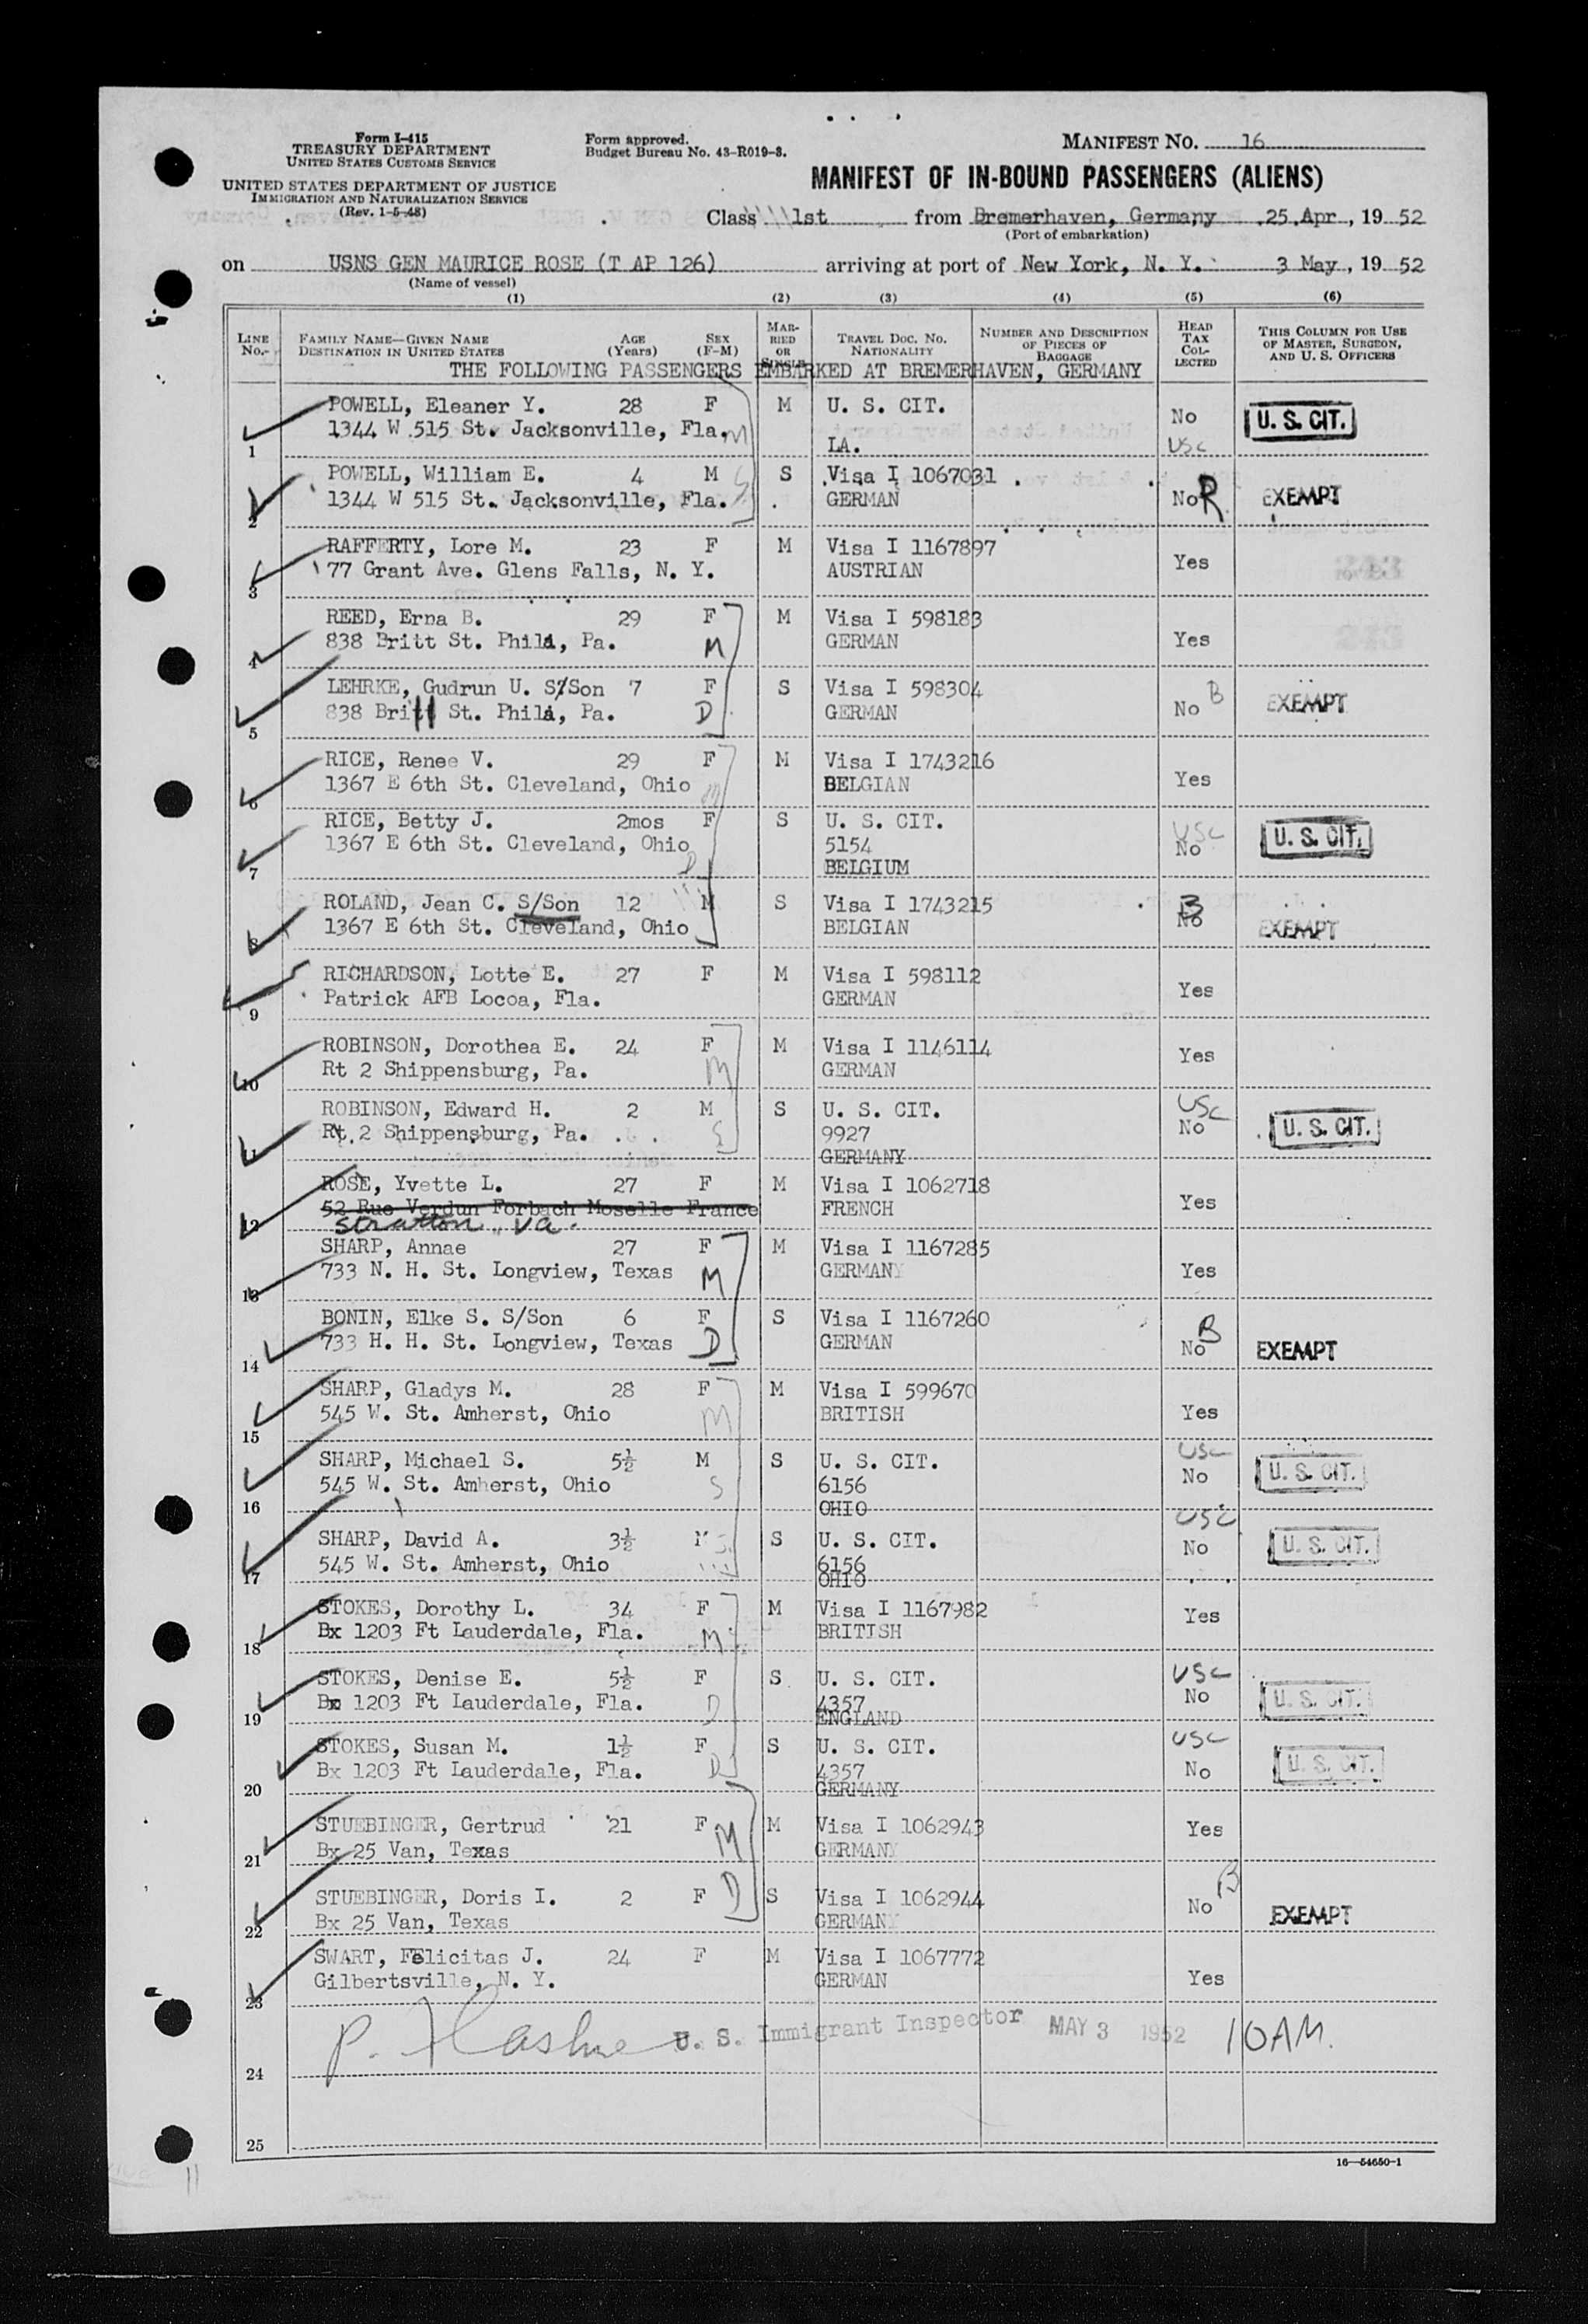 Form I-415
TREASURY DEPARTMENT
UNITED STATES CUSTOMS SERVICE
UNITED STATES DEPARTMENT OF JUSTICE
IMMIGRATION AND NATURALIZATION SERVICE
(Rev. 1-5-48)
Form approved.
Budget Bureau No. 43-R019-3.
MANIFEST NO. 16
MANIFEST OF IN-BOUND PASSENGERS (ALIENS)
Class 1st from Bremerhaven, Germany 25 Apr, 19 52
(Port of embarkation)
on USNS GEN MAURICE ROSE (T AP 126) arriving at port of New York, N. Y. 3 May, 19 52
(Name of vessel)
(1) (2) (3) (4) (5) (6)
LINE No. FAMILY NAME—GIVEN NAME DESTINATION IN UNITED STATES AGE (Years) SEX (F-M) MARRIED OR SINGLE TRAVEL DOC. NO. NATIONALITY NUMBER AND DESCRIPTION OF PIECES OF BAGGAGE HEAD TAX COLLECTED THIS COLUMN FOR USE OF MASTER, SURGEON, AND U. S. OFFICERS
THE FOLLOWING PASSENGERS EMBARKED AT BREMERHAVEN, GERMANY
POWELL, Eleaner Y. 28 F M U. S. CIT. No U. S. CIT.
1 1344 W 515 St. Jacksonville, Fla. M LA. USC
POWELL, William E. 4 M S Visa I 1067031
2 1344 W 515 St. Jacksonville, Fla. S GERMAN No R EXEMPT
RAFFERTY, Lore M. 23 F M Visa I 1167897
3 77 Grant Ave. Glens Falls, N. Y. AUSTRIAN Yes
REED, Erna B. 29 F M Visa I 598183
4 838 Britt St. Phila, Pa. M GERMAN Yes
LEHRKE, Gudrun U. S/Son 7 F S Visa I 598304 B
5 838 Britt St. Phila, Pa. D GERMAN No EXEMPT
RICE, Renee V. 29 F M Visa I 1743216
6 1367 E 6th St. Cleveland, Ohio M BELGIAN Yes
RICE, Betty J. 2mos F S U. S. CIT. USC U. S. CIT.
7 1367 E 6th St. Cleveland, Ohio D 5154 No
BELGIUM
ROLAND, Jean C. S/Son 12 M S Visa I 1743215 B
8 1367 E 6th St. Cleveland, Ohio BELGIAN No EXEMPT
RICHARDSON, Lotte E. 27 F M Visa I 598112
9 Patrick AFB Locoa, Fla. GERMAN Yes
ROBINSON, Dorothea E. 24 F M Visa I 1146114
10 Rt 2 Shippensburg, Pa. M GERMAN Yes
ROBINSON, Edward H. 2 M S U. S. CIT. USC
11 Rt 2 Shippensburg, Pa. S 9927 No U. S. CIT.
GERMANY
ROSE, Yvette L. 27 F M Visa I 1062718
12 52 Rue Verdun Forbach Moselle France FRENCH Yes
Stratton, Va.
SHARP, Annae 27 F M Visa I 1167285
13 733 N. H. St. Longview, Texas M GERMANY Yes
BONIN, Elke S. S/Son 6 F S Visa I 1167260 B
14 733 H. H. St. Longview, Texas D GERMAN No EXEMPT
SHARP, Gladys M. 28 F M Visa I 599670
15 545 W. St. Amherst, Ohio M BRITISH Yes
SHARP, Michael S. 5½ M S U. S. CIT. USC
16 545 W. St. Amherst, Ohio S 6156 No U. S. CIT.
OHIO
SHARP, David A. 3½ M S S U. S. CIT. USC
17 545 W. St. Amherst, Ohio 6156 No U. S. CIT.
OHIO
STOKES, Dorothy L. 34 F M Visa I 1167982
18 Bx 1203 Ft Lauderdale, Fla. M BRITISH Yes
STOKES, Denise E. 5½ F S U. S. CIT. USC
19 Bx 1203 Ft Lauderdale, Fla. D 4357 No U. S. CIT.
ENGLAND
STOKES, Susan M. 1½ F S U. S. CIT. USC
20 Bx 1203 Ft Lauderdale, Fla. D 4357 No U. S. CIT.
GERMANY
STUEBINGER, Gertrud 21 F M Visa I 1062943
21 Bx 25 Van, Texas M GERMANY Yes
STUEBINGER, Doris I. 2 F D S Visa I 1062944 B
22 Bx 25 Van, Texas GERMANY No EXEMPT
SWART, Felicitas J. 24 F M Visa I 1067772
23 Gilbertsville, N. Y. GERMAN Yes
P. U. S. Immigrant Inspector MAY 3 1952 10 AM.
24
25
16—54650-1